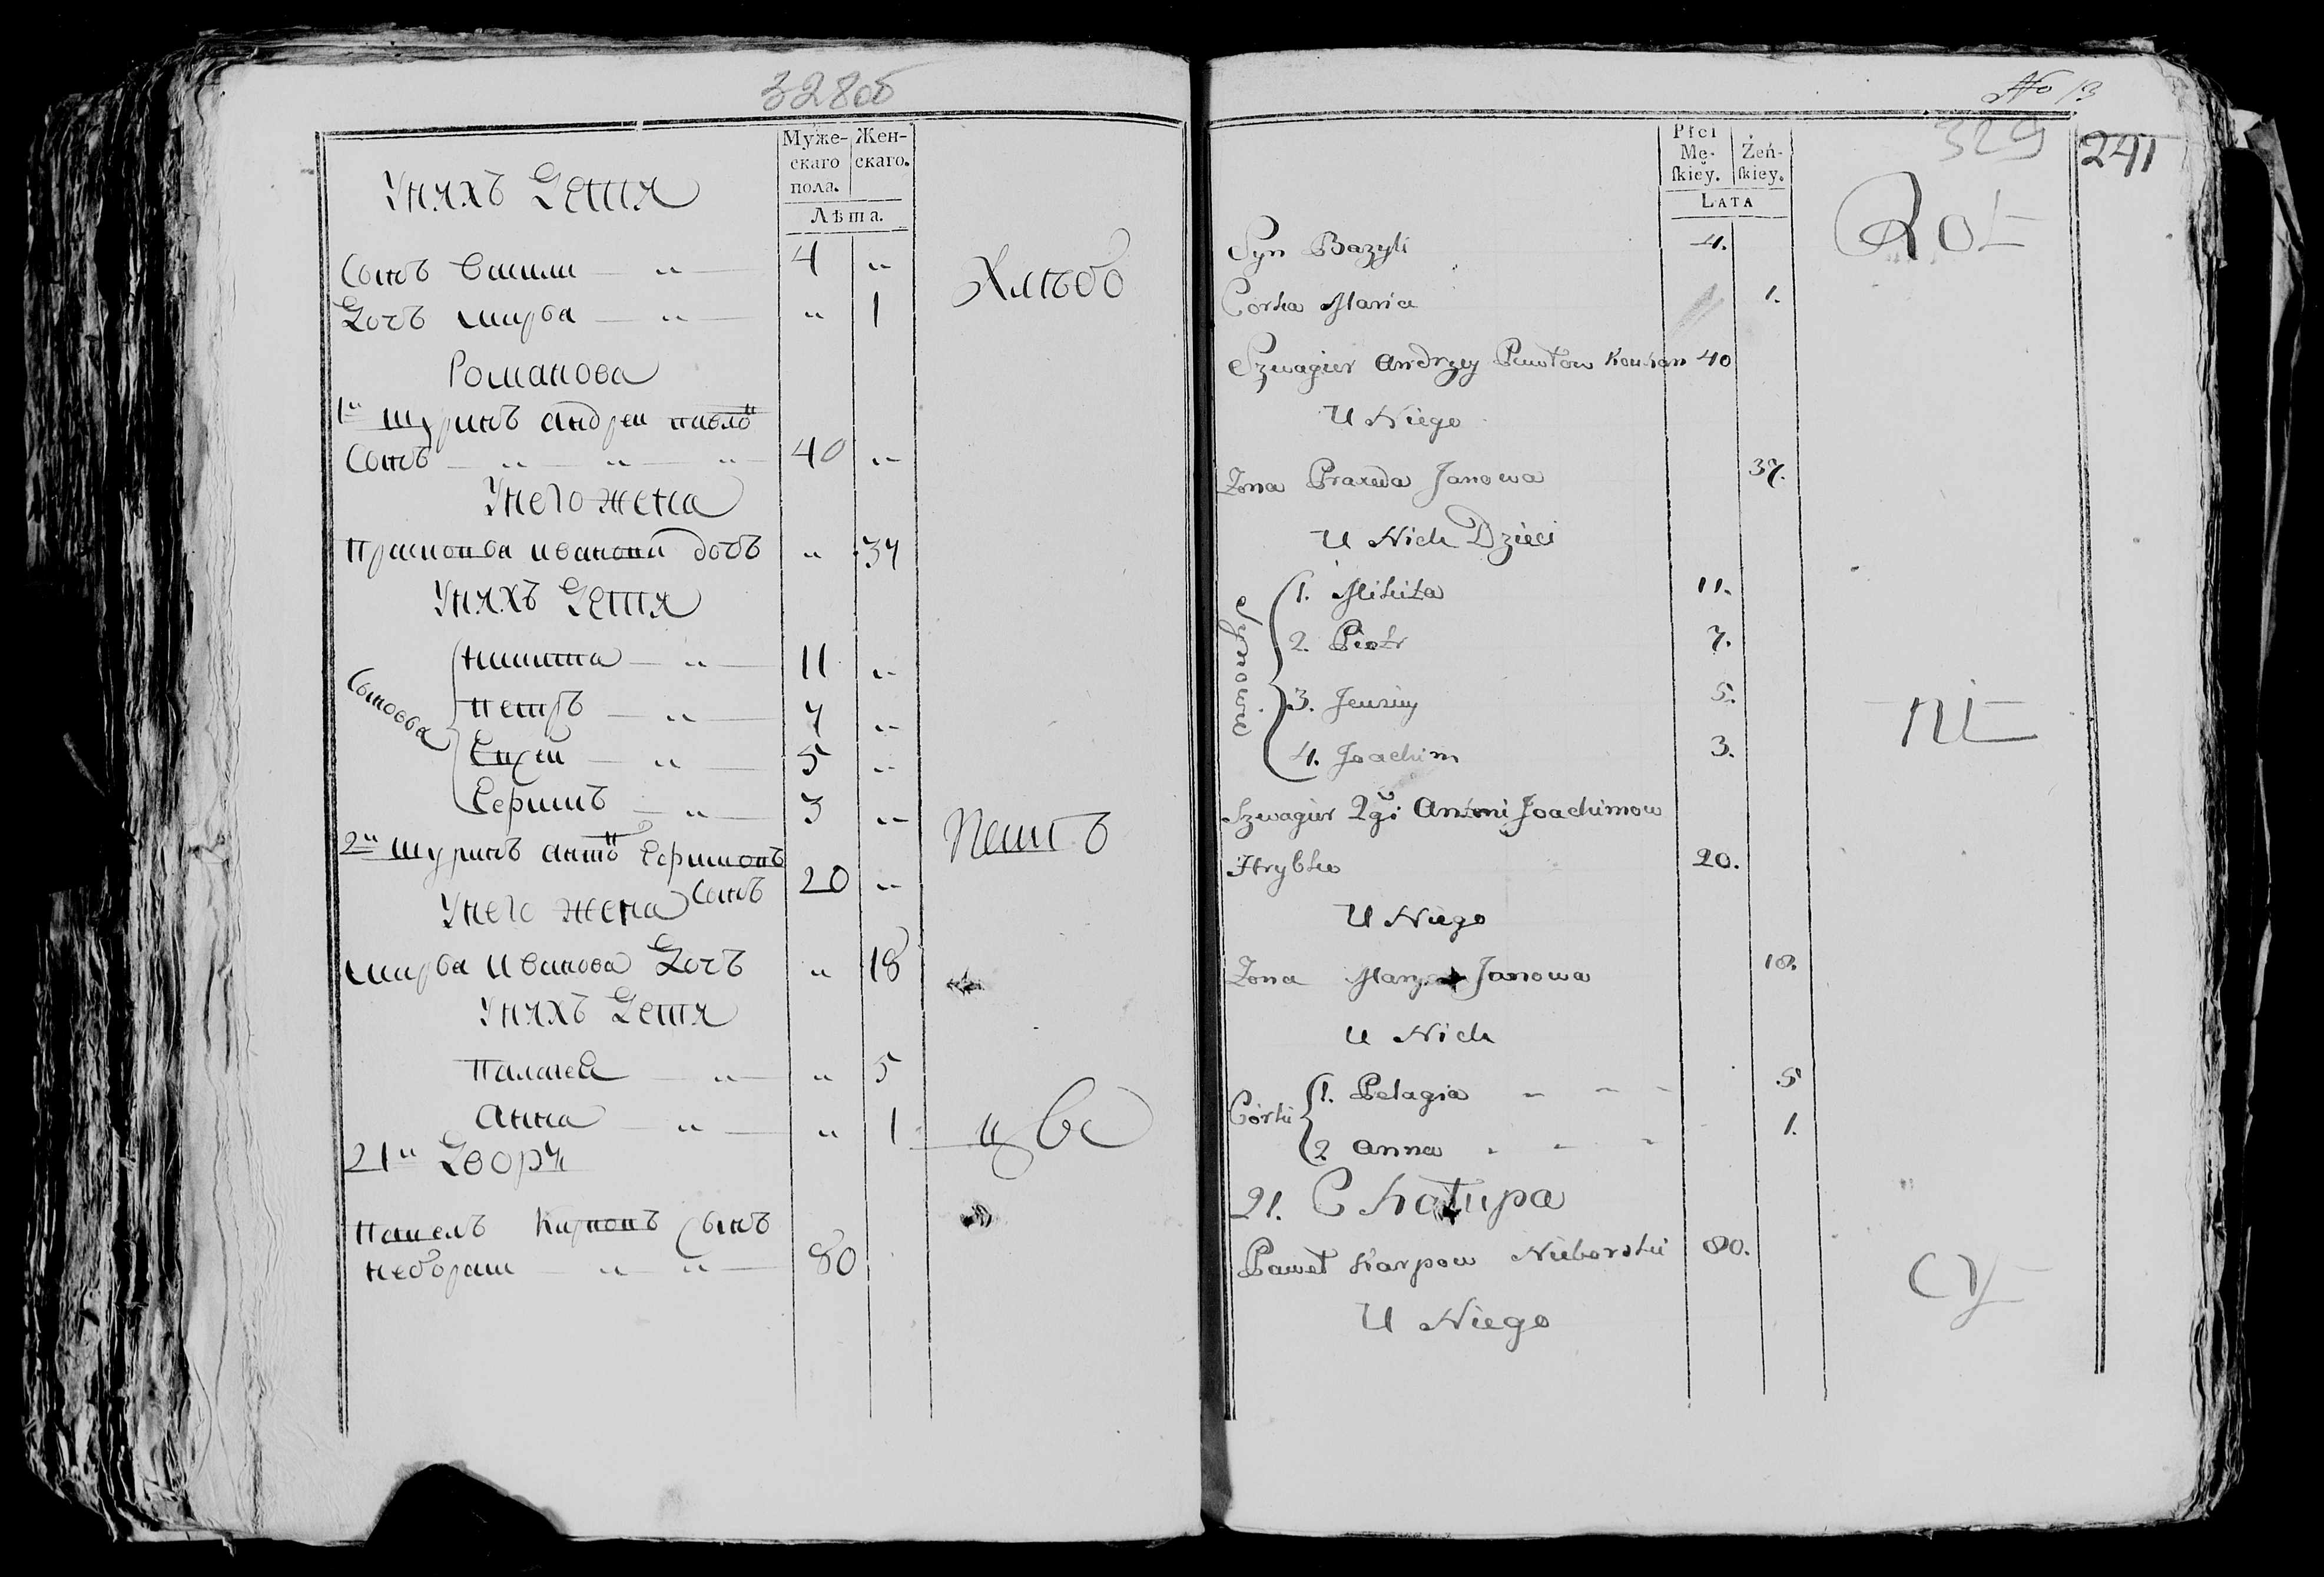 328об
Муже-скаго пола. Жен-скаго.
Лѣта.
Унихъ Дети
Сынъ Васили 4 "
Дочь Марья " 1
Романова
1й Шуринъ Андреи Павло
Сынъ 40 "
Унего жена
Прасковья Иванова дочь " 37
Унихъ Дети
Сыновья
Никита 11 "
Петръ 7 "
5 "
Ефимъ 3 "
2й Шуринъ Антонъ Ефимовъ
Сынъ 20 "
Унего жена
Марья Иванова Дочь " 18
Унихъ Дети
Палагея " 5
Анна " 1
21й Дворъ
Павелъ Карповъ Сынъ
80
№ 13
329
241
Płci Mę-ſkiey. Żeń-ſkiey.
LATA
Syn Bazyli 4.
Corka Maria 1.
Szwagier Andrzey Pawłow 40
U Niego
Zona Praxeda Janowa 37.
U Nich Dzieci
Synowie
1. Mikita 11.
2. Piotr 7.
3. 5.
4. Joachim 3.
Szwagier 2gi Antoni Joachimow
Hrybko 20.
U Niego
Zona Janowa 18.
U Nich
Córki
1. Pelagia 5
2. Anna 1.
21. Chałupa
Paweł Karpow Nieborski 80.
U Niego